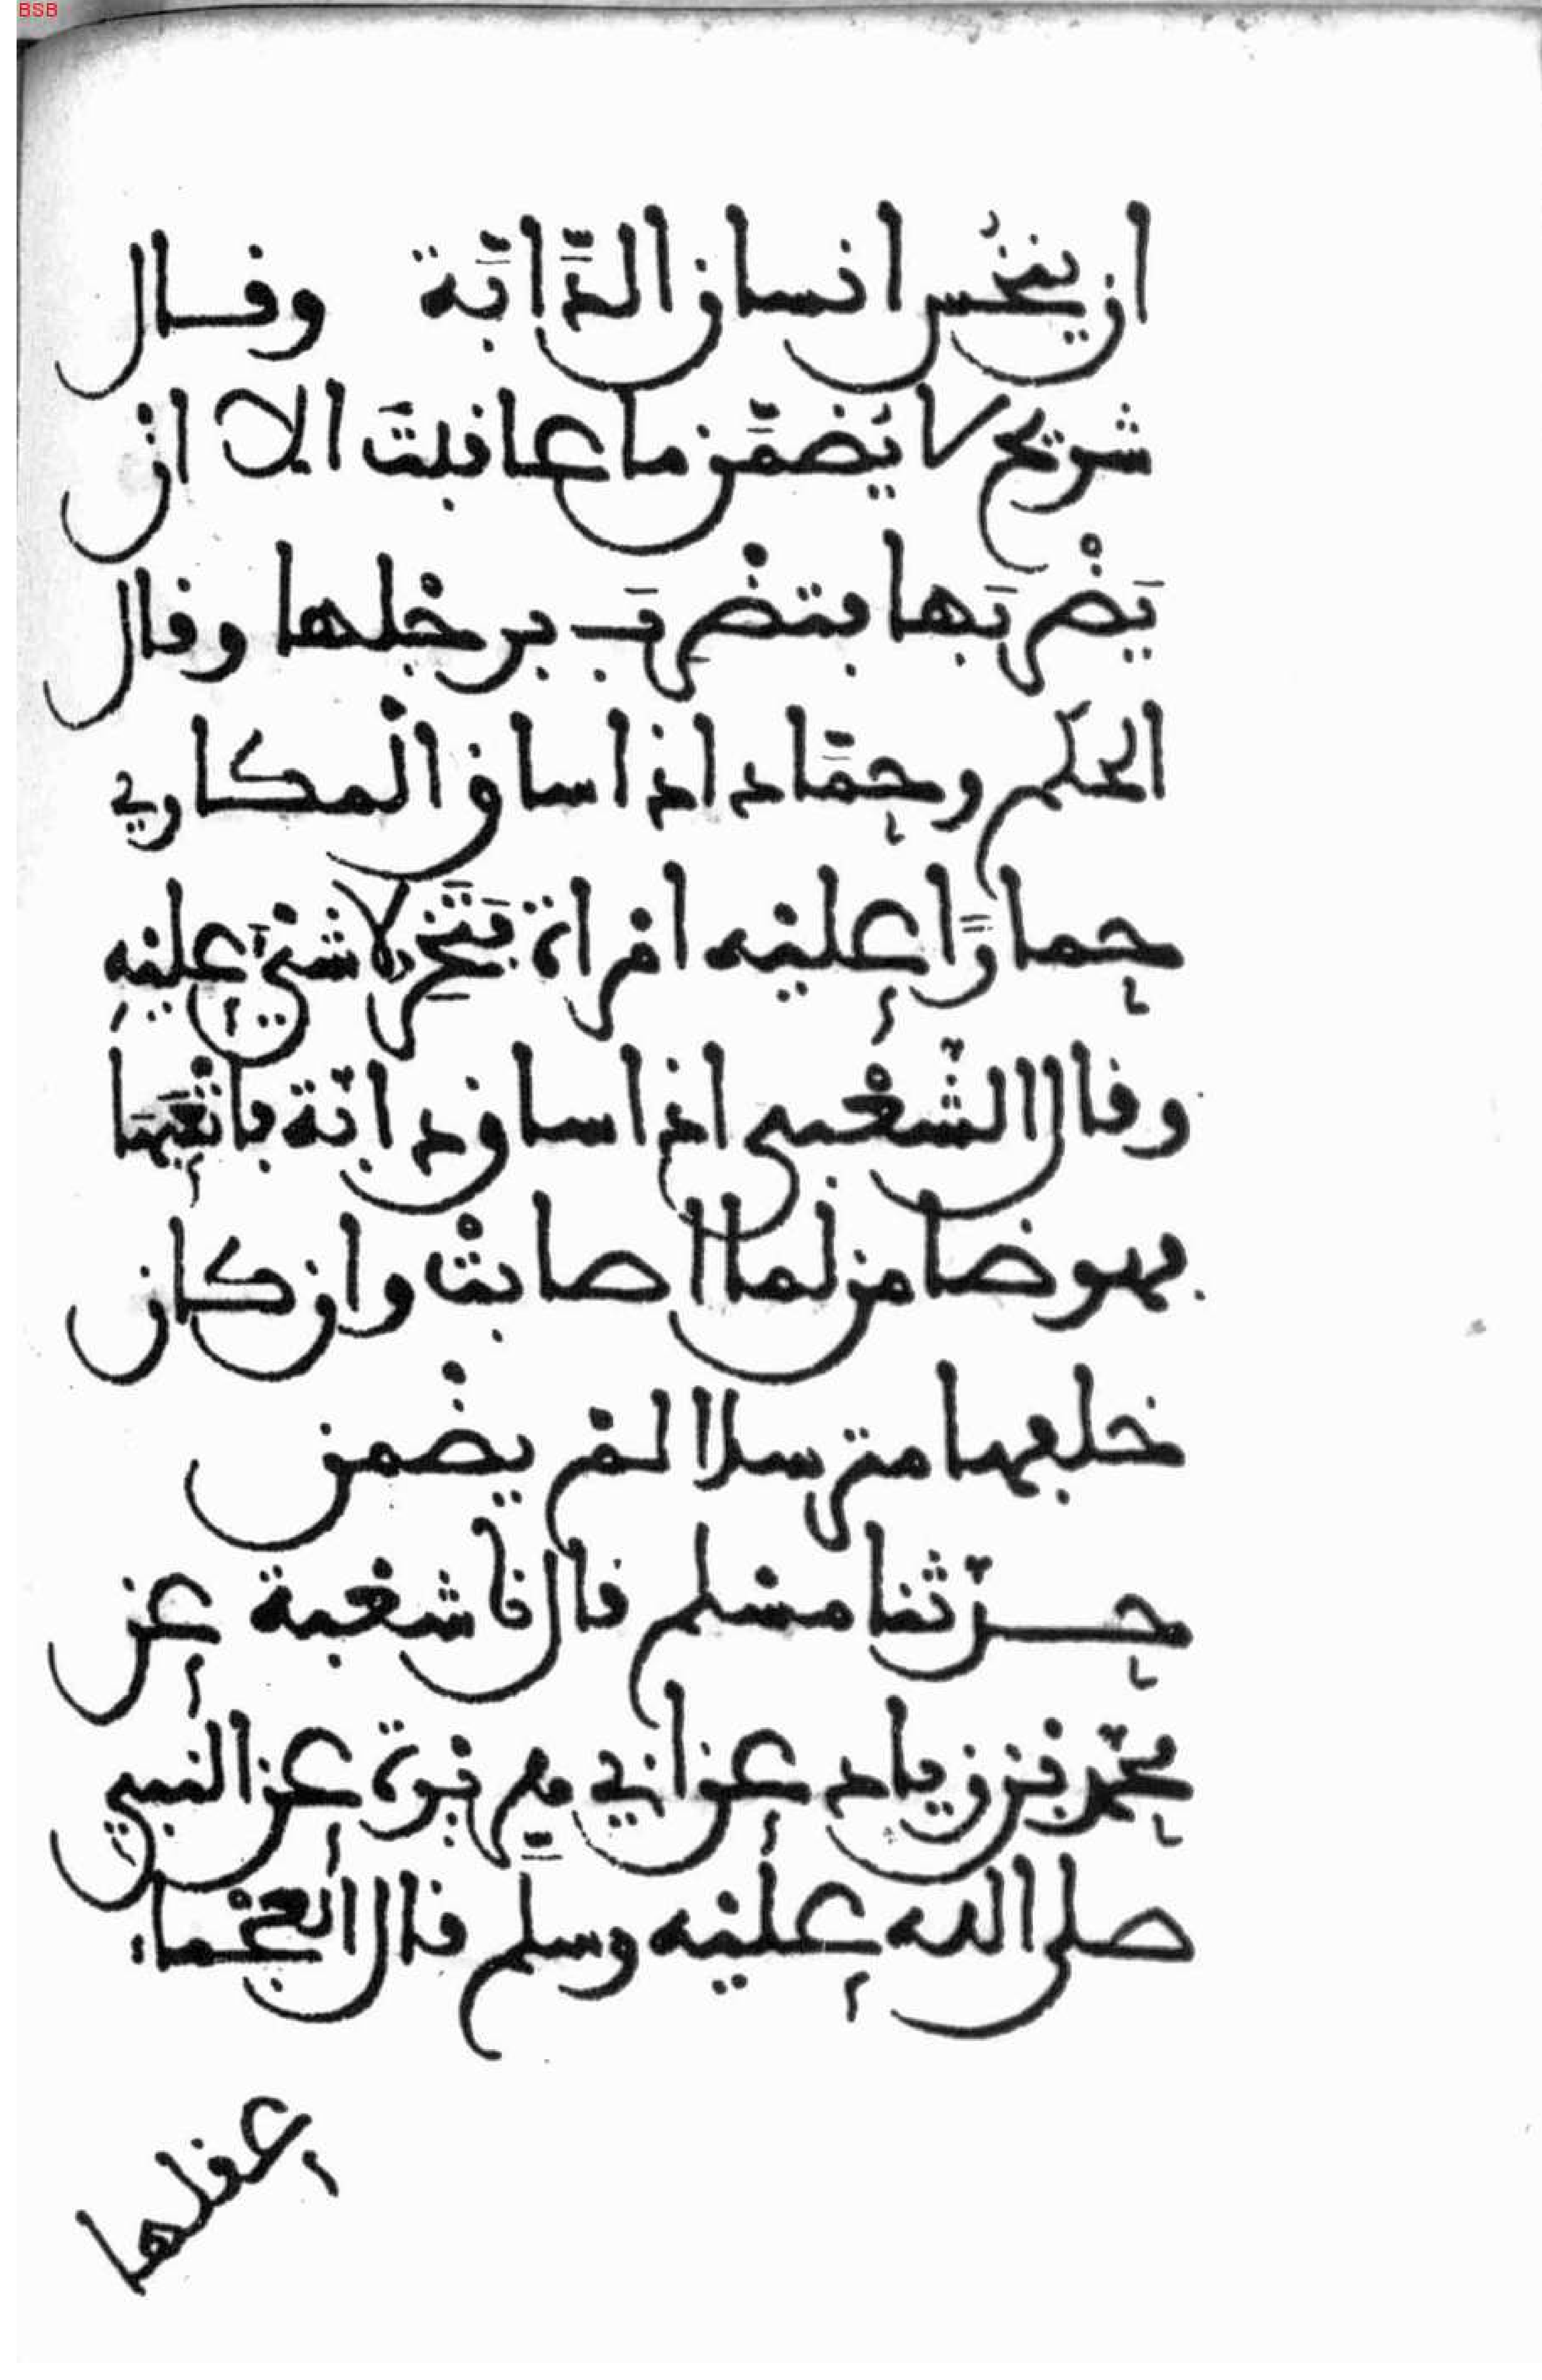 BSB
ان ينخُس انسان الدَّابَّة وقال
شريح لا يُضَمَّن ما عاقبتَ الا ان
يَضْربَها فتضْربَ برجْلها وقال
الحكَم وحمَّاد اذا ساق الْمكاري
حمارًا عليْه امْراة فتَخِر لا شيْءَ عليْهِ
وقال الشّعْبي اذا ساق دابّة فاتْعَبَها
فهو ضامن لما اصابتْ وان كان
خلفها مترسلا لمْ يضْمن
حدّثنا مسْلم قال نا شعْبة عن
محمّد بن زياد عن ابي هريْرة عن النبي
صلى الله عليْه وسلَّم قال الْعجْماء
عقلها